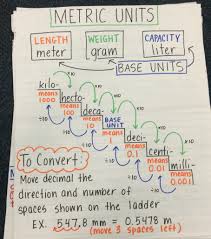 METRIC UNITS
LENGTH WEIGHT CAPACITY
meter gram liter
BASE UNITS
kilo-
means
1000
hecto-
means
100
deca-
means
10
BASE
UNIT
1
deci-
means
0.1
centi-
means
0.01
milli-
means
0.001
÷10 ÷10 ÷10 ÷10 ÷10 ÷10
×10 ×10 ×10 ×10 ×10 ×10
To Convert:
Move decimal the
direction and number of
spaces shown on the ladder
EX. 547.8 mm = 0.5478 m
(move 3 spaces left)